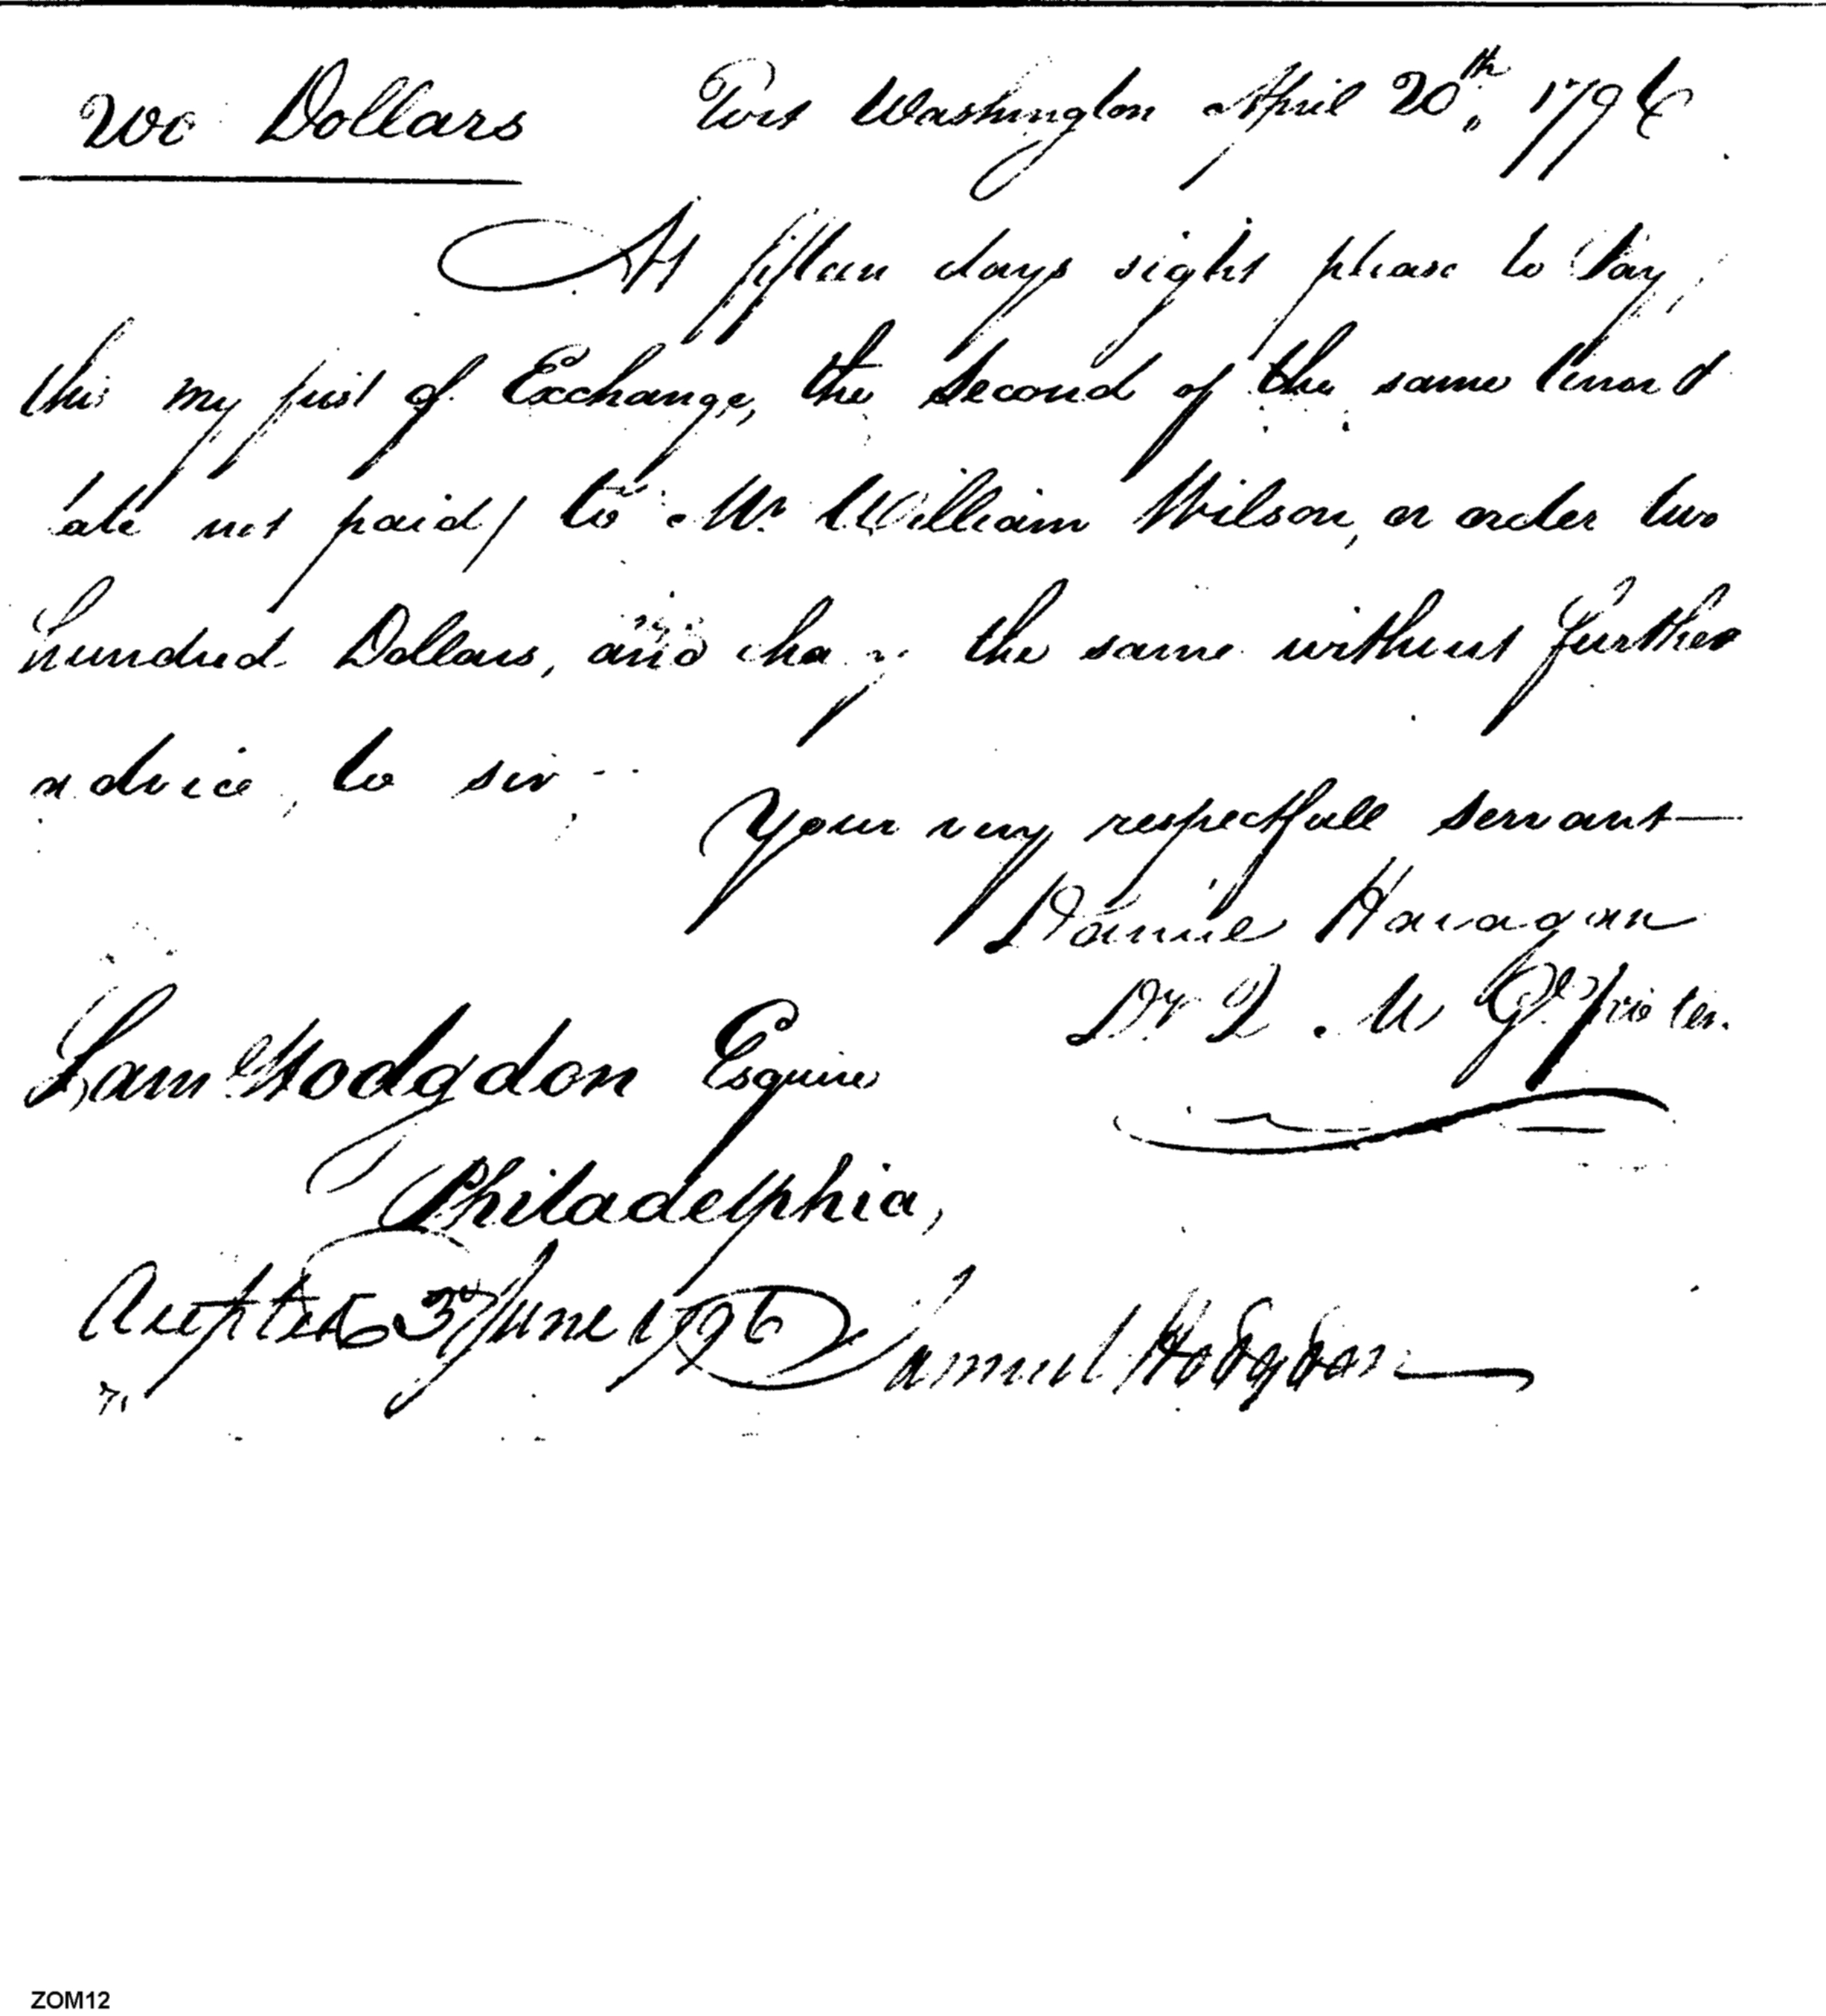 200 Dollars Fort Washington April 20th. 1796.
At fifteen days sight please to pay,
this my first of Exchange, the second of the same tenor &
date not paid/ to Mr William Wilson, or order two
hundred Dollars, and charge the same without further
advice, to sir
Your very respectfull servant—
Daniel
D. Q. M. Gl
Saml Hodgdon Esquire
Philadelphia,
Accepted 3d June 1796 Samuel Hodgdon
ZOM12